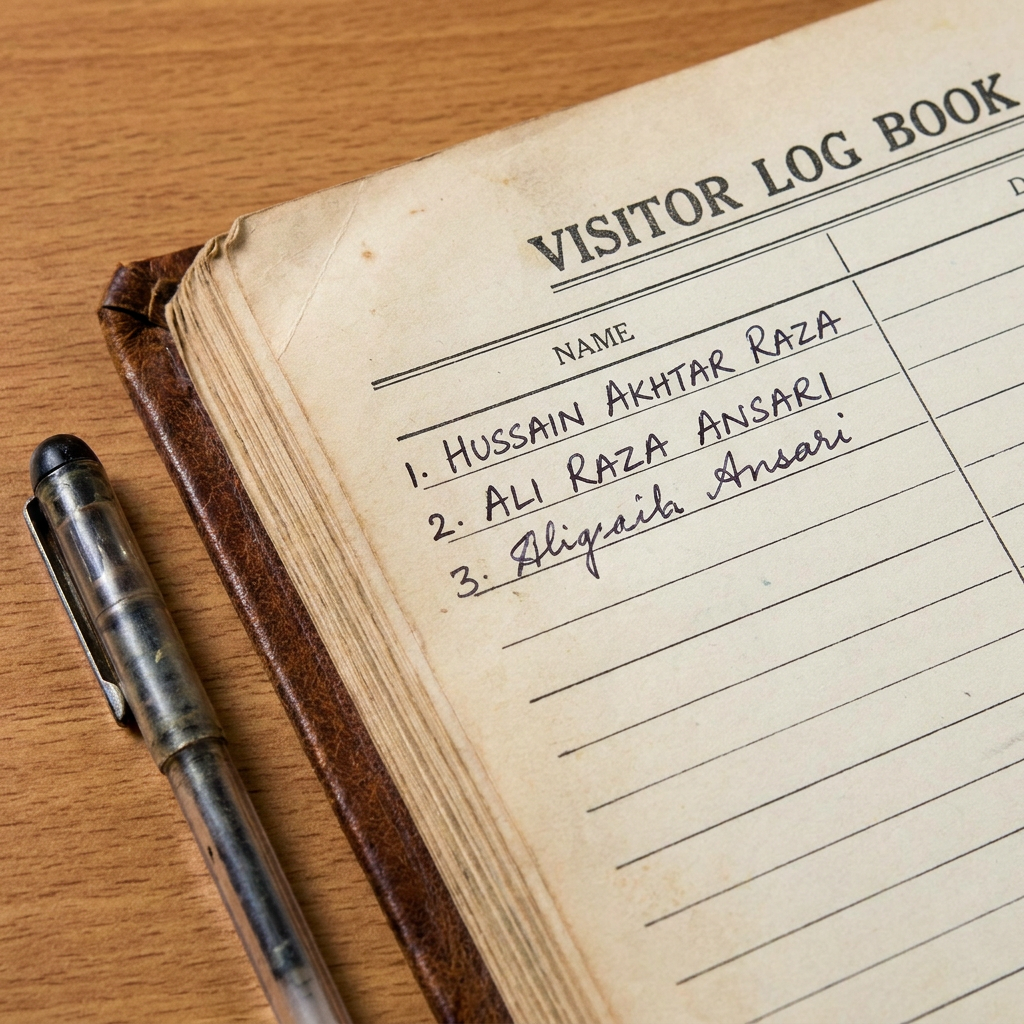 VISITOR LOG BOOK
NAME
1. HUSSAIN AKHTAR RAZA
2. ALI RAZA ANSARI
3. Ansari